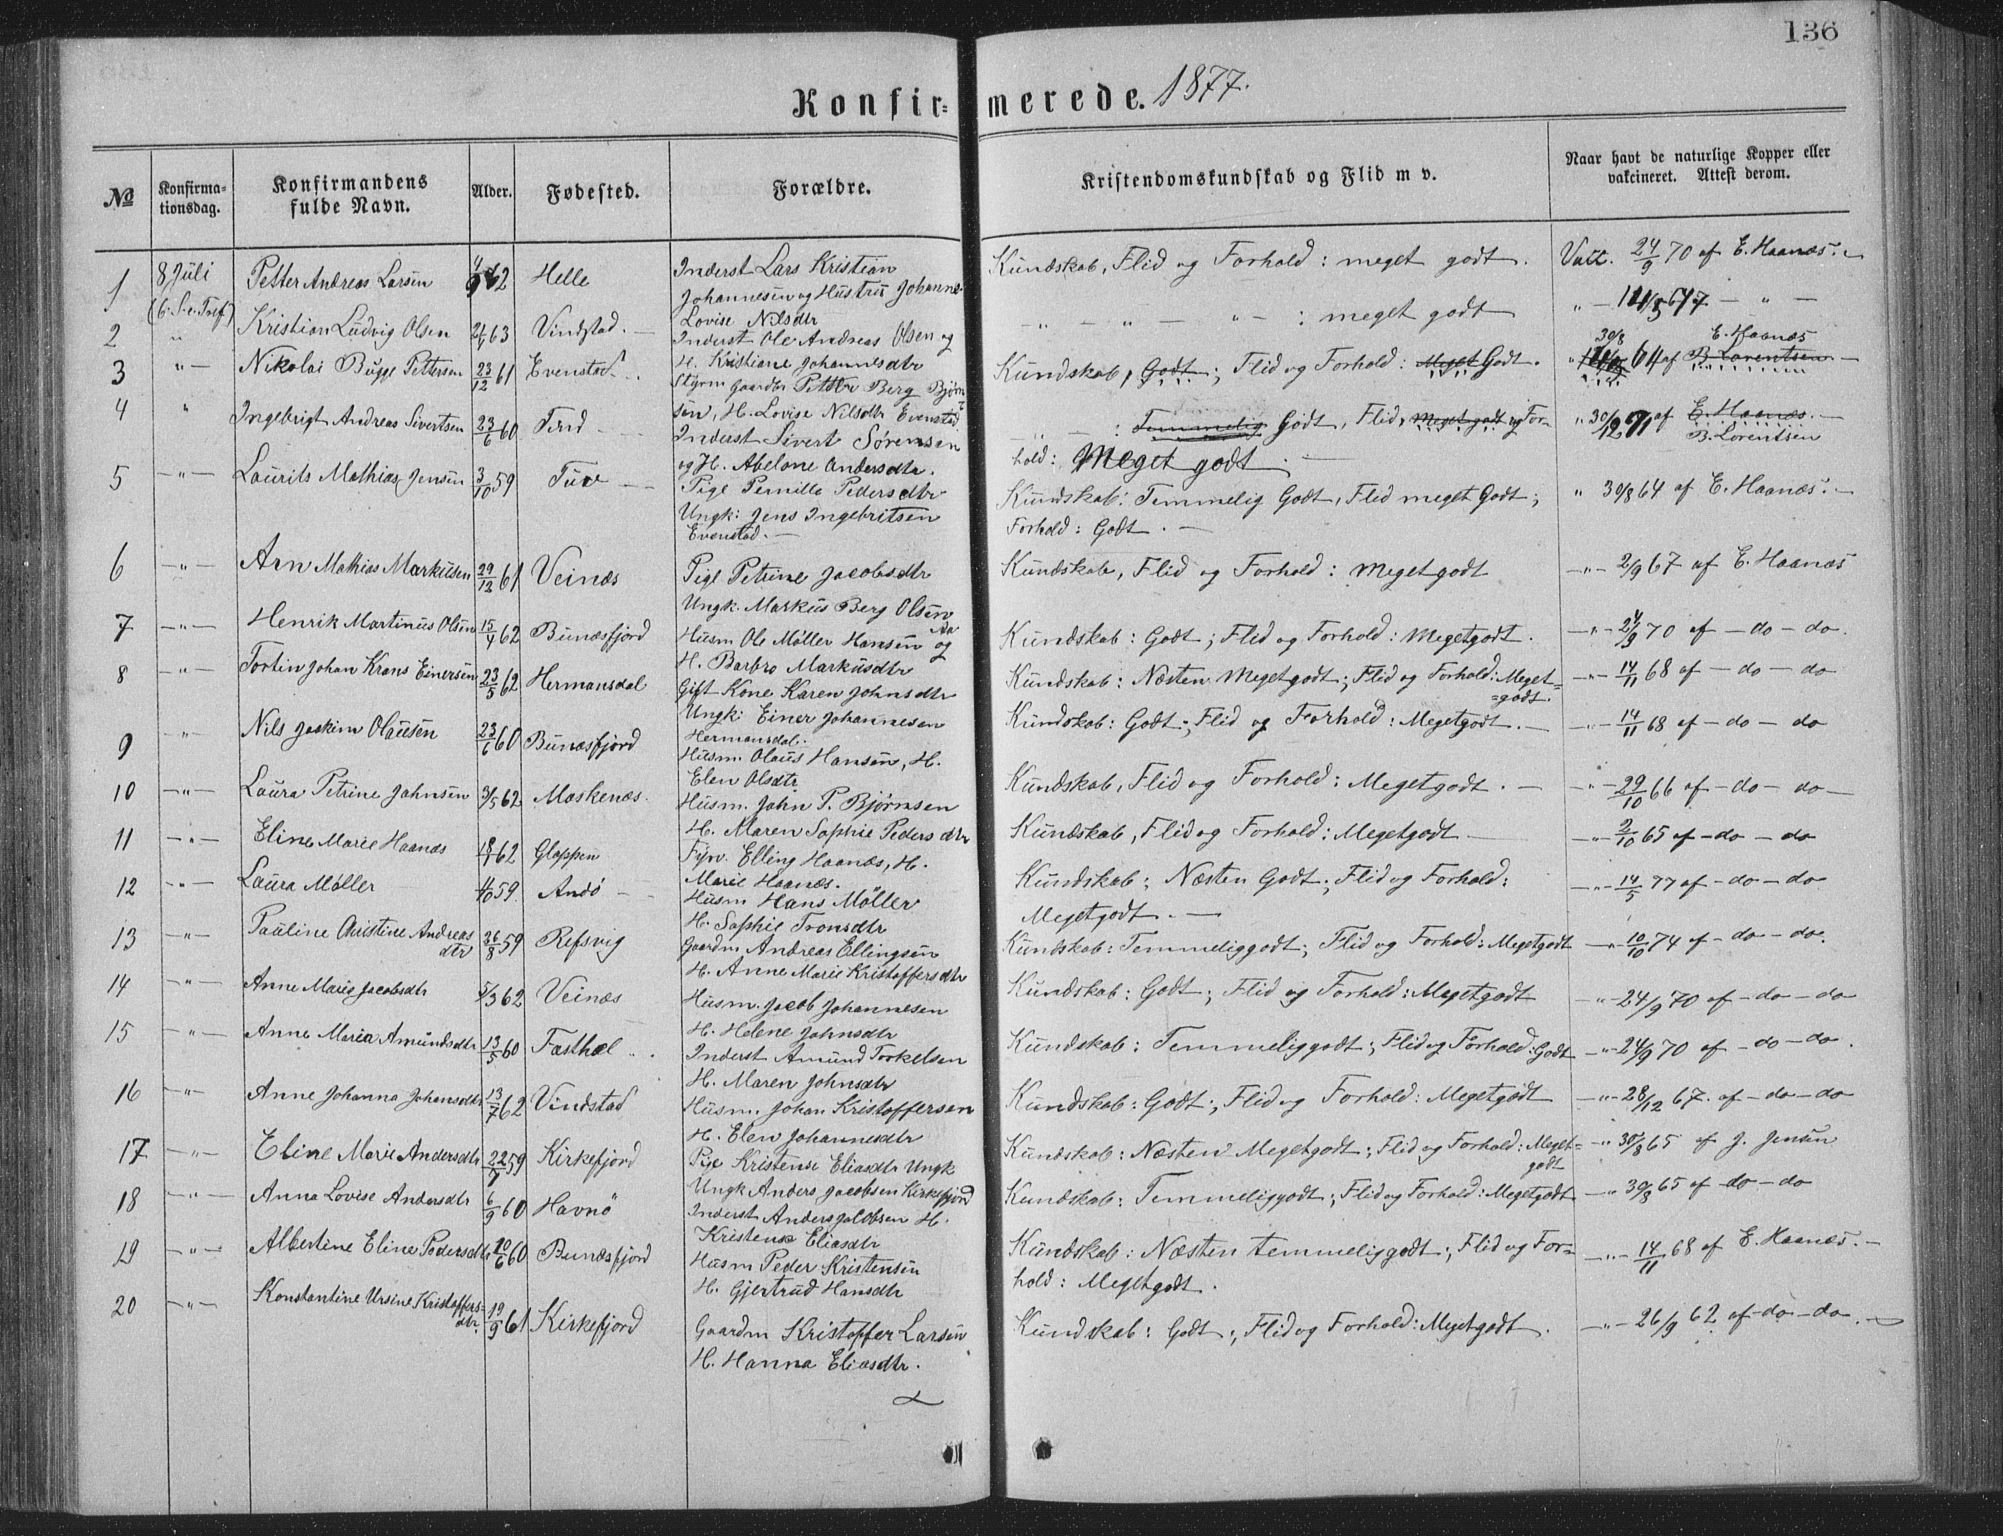 136
Konfirmerede. 1877.
№ Konfirmationsdag. Konfirmandens fulde Navn. Alder. Fødested. Forældre. Kristendomskundskab og Flid m v. Naar havt de naturlige Kopper eller vakcineret. Attest derom.
1 8 Juli (6. S. e. Tref) Petter Andreas Larsen 62 Helle Inderst Lars Kristian
Johannesen og Hustru Johanne
Lovise Nilsdtr Kundskab, Flid og Forhold: meget godt. Vacc. 24/9 70 af E. Haanæs.
2 " Kristian Ludvig Olsen 63 Vindstad. Inderst Ole Andreas Olsen og
H. Kristiane Johannesdtr — " — " — " — : meget godt
3 — " — Nikolai Bugge Pettersen 23/12 61 Evenstad Styrm gaardbr Petter Berg Bjørn
sen, H. Lovise Nilsdtr Evenstad Kundskab, Godt; Flid og Forhold: Meget Godt. 30/8 64 af E. Haanæs B. Lorentsen
4 " Ingebrigt Andreas Sivertsen 23/6 60 Tind Inderst Sivert Sørensen
og H. Abelone Andersdtr. — " — : Temmelig Godt, Flid, Meget godt og For-
hold: Meget godt. " 30/12 71 af E. Haanæs. B. Lorentsen
5 — " — Laurits Mathias Jensen 3/10 59 Tuv Pige Pernille Pedersdtr
Ungk: Jens Ingebritsen
Evenstad. — Kundskab: Temmelig Godt, Flid meget Godt;
Forhold: Godt. — " 30/8 64 af E. Haanæs. —
6 — " — Arn Mathias Markusen 29/12 61 Veinæs Pige Petrine Jacobsdtr
Ungk. Markus Berg Olsen Kundskab, Flid og Forhold: Megetgodt — " — 2/9 67 af E. Haanæs
7 — " — Henrik Martinus Olsen 15/1 62 Bunæsfjord Husm Ole Møller Hansen og
H. Barbro Markusdtr Kundskab: Godt; Flid og Forhold: Megetgodt. — " — 24/9 70 af — do — do.
8 — " Tortin Johan Krans Einersen 23/5 62 Hermansdal Gift Kone Karen Johnsdtr
Ungk: Einer Johannesen
Hermansdal. Kundskab: Næsten Megetgodt; Flid og Forhold: Meget=
=godt. — " — 14/11 68 af — do — do
9 — " Nils Joakim Olausen 23/6 60 Bunæsfjord Husm Olaus Hansen, H.
Elen Olsdtr Kundskab: Godt; Flid og Forhold: Megetgodt. — — " — 14/11 68 af — do — do
10 — " — Laura Petrine Johnsen 3/5 62 Moskenæs. Husm. John P. Bjørnsen
H. Maren Sophie Pedersdtr Kundskab, Flid og Forhold: Megetgodt. — — " — 29/10 66 af — do — do —
11 — " — Eline Marie Haanæs 62 Gloppen Fyrv. Elling Haanæs, H.
Marie Haanæs. Kundskab, Flid og Forhold: Megetgodt — — " — 2/10 65 af — do — do
12 — " — Laura Møller 59 Andø — Husm Hans Møller
H. Sophie Tronsdtr Kundskab: Næsten Godt; Flid og Forhold:
Megetgodt. — — " — 14/5 77 af — do — do
13 — " — Pauline Christine Andreas
dtr 26/8 59 Refsvig Gaardm Andreas Ellingsen
H. Anne Marie Kristoffersdtr Kundskab: Temmeliggodt; Flid og Forhold: Megetgodt — " — 10/10 74 af — do — do.
14 — " — Anne Marie Jacobsdtr 5/3 62 Veinæs Husm. Jacob Johannesen
H. Helene Johnsdtr Kundskab: Godt; Flid og Forhold: Megetgodt — " — 24/9 70 af — do — do
15 — " — Anne Maria Amundsdtr 13/5 60 Fasthæl Inderst Amund Torkelsen
H. Maren Johnsdtr Kundskab: Temmeliggodt; Flid og Forhold: Godt — " — 24/9 70 af — do — do.
16 — " — Anne Johanna Johansdtr 13/7 62 Vindstad Husm. Johan Kristoffersen
H. Elen Johannesdtr Kundskab: Godt; Flid og Forhold: Megetgodt — " — 28/12 67. af — do — do
17 — " — Eline Marie Andersdtr 59 Kirkefjord Pige Kristense Eliasdtr Ungk
Ungk Anders Jacobsen Kirkefjord Kundskab: Næsten Megetgodt; Flid og Forhold: Meget=
godt — " 30/8 65 af J. Jensen
18 — " — Anna Lovise Andersdtr 6/9 60 Havnö Inderst Anders Jacobsen H.
Kristense Eliasdtr Kundskab: Temmeliggodt; Flid og Forhold: Megetgodt — " 30/8 65 af do — do
19 — " — Albertine Eline Pedersdtr 20/6 60 Bunæsfjord Husm Peder Kristensen
H. Gjertrud Hansdtr Kundskab: Næsten temmeliggodt; Flid og For=
hold: Megetgodt. — " — 14/11 68 af E. Haanæs. —
20 — " — Konstantine Ursine Kristoffers=
dtr. 19/9 61 Kirkefjord Gaardm Kristoffer Larsen
H. Hanna Eliasdtr. Kundskab: Godt; Flid og Forhold: Megetgodt. — " — 26/9 62 af — do — do.